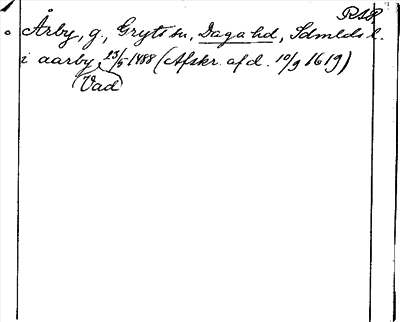 RAP
Årby, g., Gryts sn, Daga hd, Sdmlds l.
i aarby 23/5 1488 (Afskr. af d. 10/9 1619)
Vad